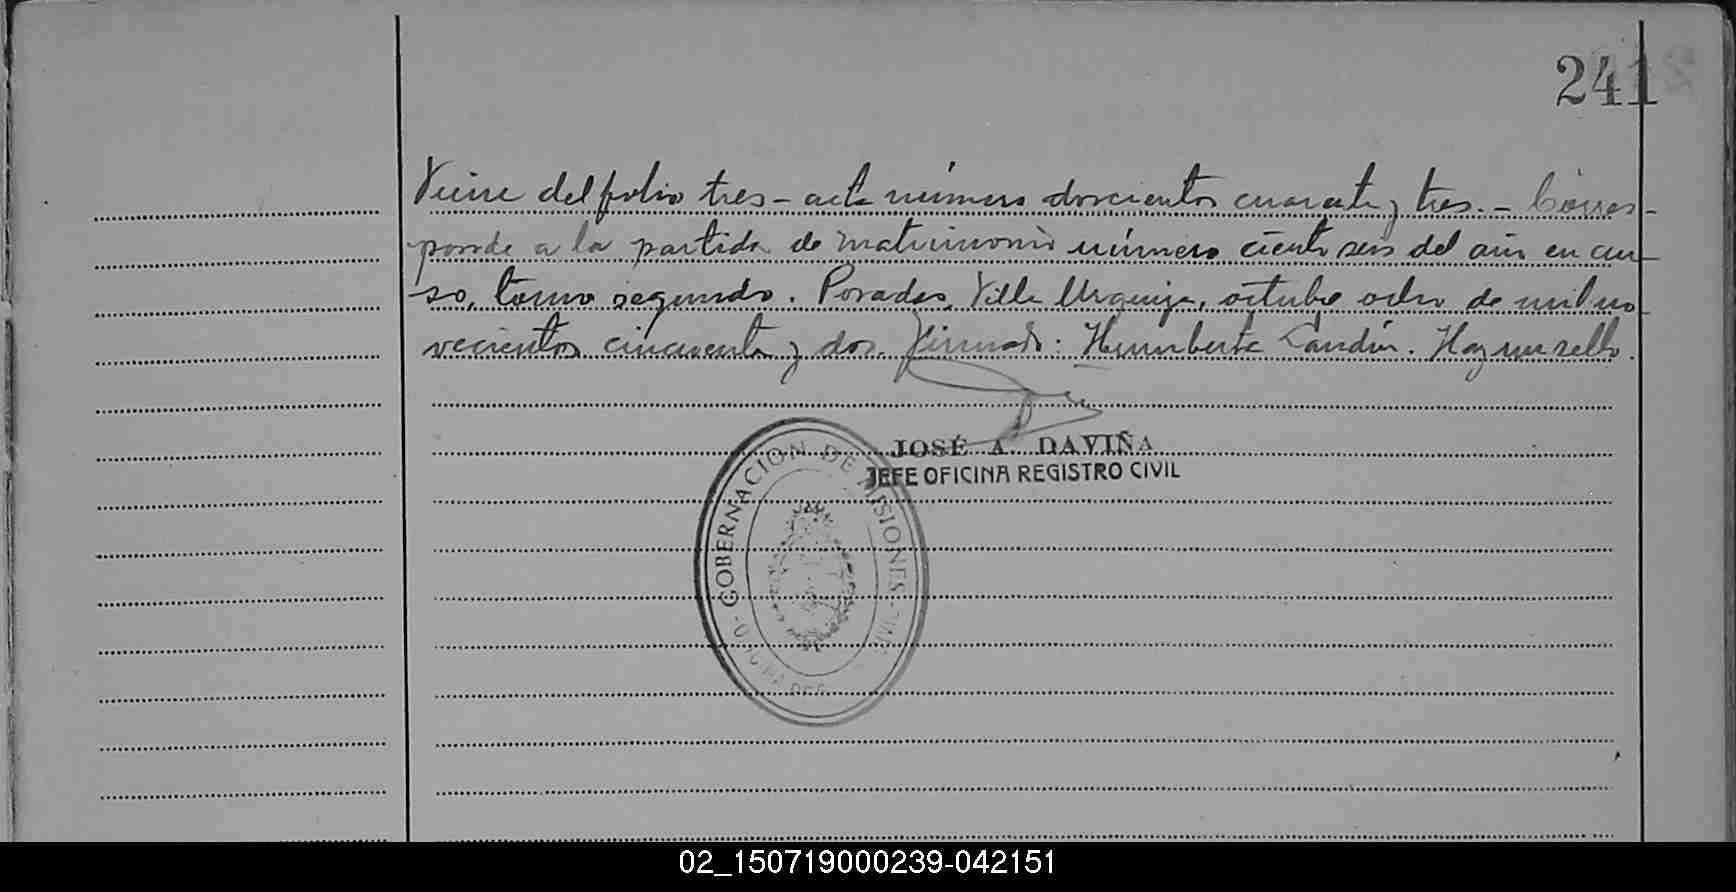 241
Viene del folio tres – acta número doscientos cuarenta y tres. – Corres-
ponde a la partida de matrimonio número ciento seis del año en cur-
so, tomo segundo. Posadas, Villa Urquiza, octubre ocho de mil no-
vecientos cincuenta y dos. Firmado: Humberto Landín. Hay un sello.
JOSÉ A. DAVIÑA
JEFE OFICINA REGISTRO CIVIL
GOBERNACION DE MISIONES
02_150719000239-042151